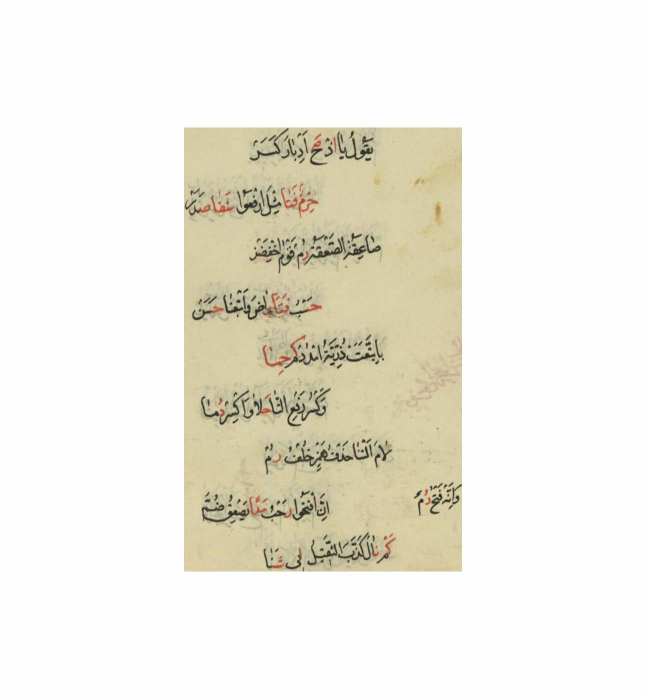 يَقُولُ يَا اذْ صَحَّ اَدْبَارَ كَسَرْ
حِرْمُ فَتًا مِثْلُ ارْفَعُوا شَفَا صَدَرْ
صَاعِقَةُ الصَّعْقَةُ رُمْ قَوْمِ اخْفِضَنْ
حَسْبُ فَتًا رَاضٍ وَاَتْبَعْنَا حَسَنْ
بِاتَّبَعَتْ ذُرِّيَّةُ امْدُدْ كَمْ حِمَا
وَكَسْرُ رَفْعِ التَّا حَلَا وَاكْسِرْ دُمَا
لَامَ اَلَتْنَا حَذْفُ هَمْزٍ خُلْفُ زُمْ
وَاِنَّهُ فَتْحُ رُمْ
اِنَّ افْتَحُوا رَحْبُ مَدًا يُصْعَقُ ضُمّْ
كَمْ نَالَ كَذَّبَ الثَّقِيلُ لِي ثَنَا